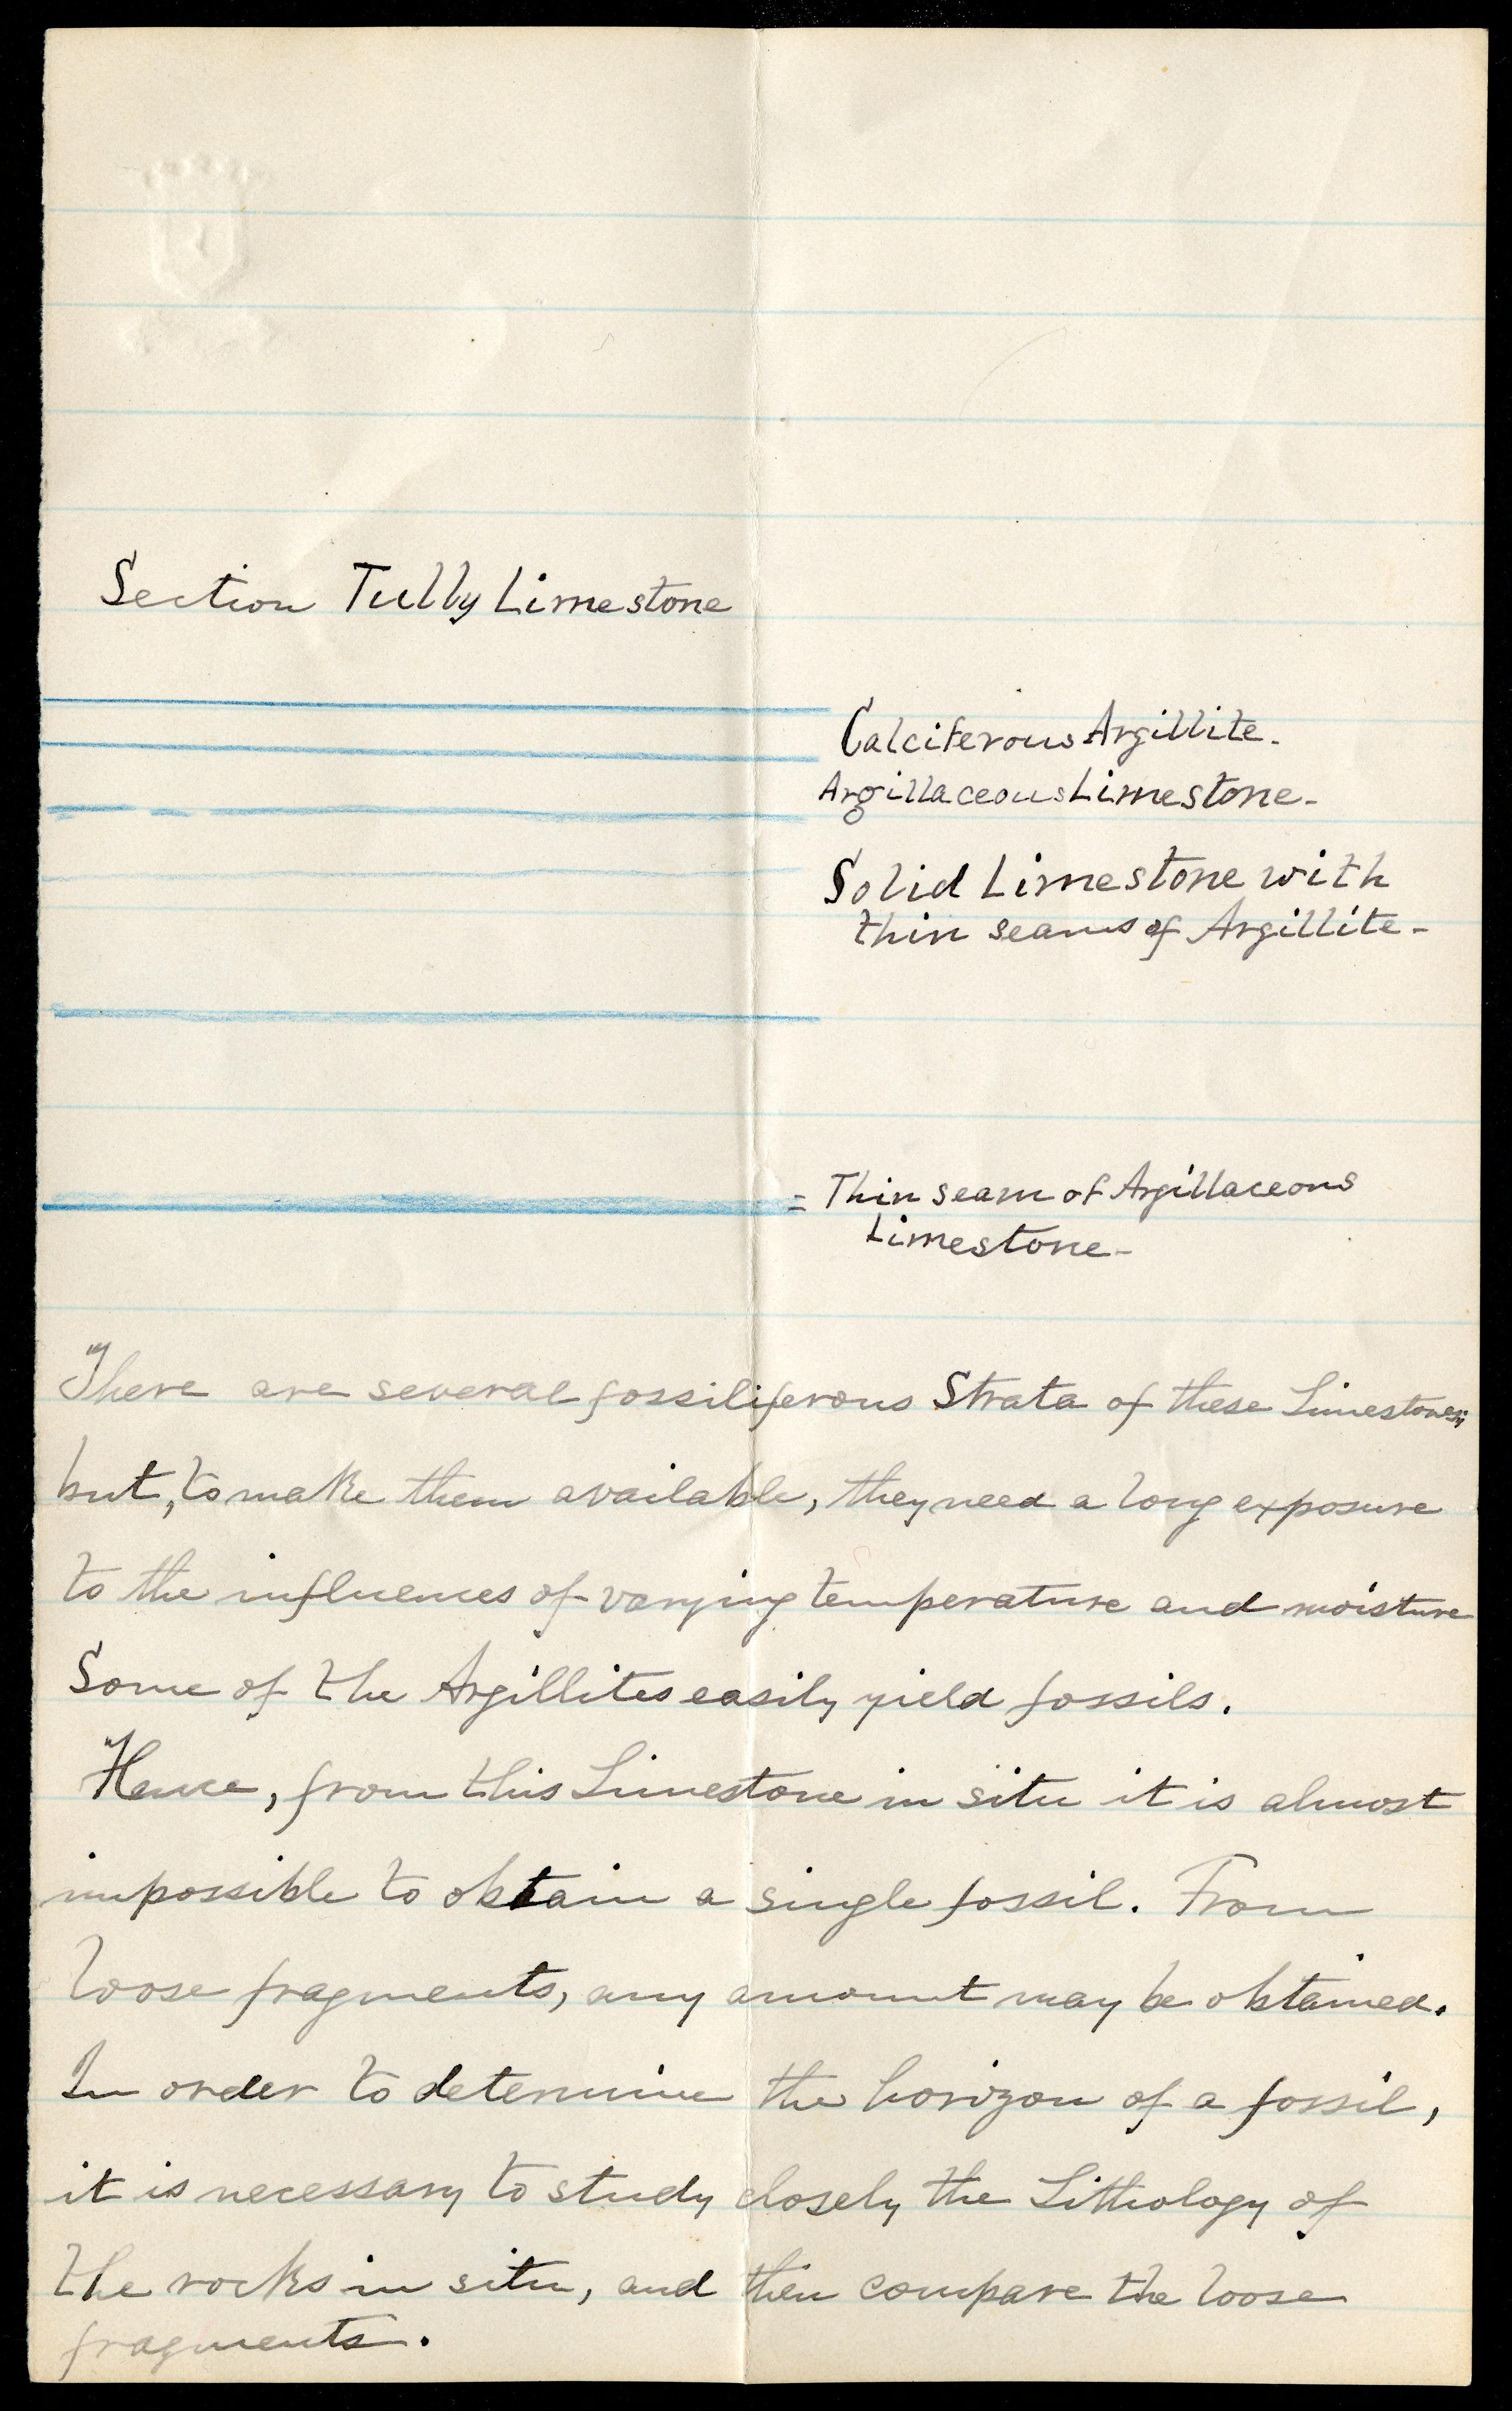 Section Tully Limestone
Calciferous Argillite.
Argillaceous Limestone.
Solid Limestone with
thin seams of Argillite.
= Thin seam of Argillaceous
Limestone.
"There are several fossiliferous Strata of these Limestones;
but, to make them available, they need a long exposure
to the influences of varying temperature and moisture
Some of the Argillites easily yield fossils.
"Hence, from this Limestone in situ it is almost
impossible to obtain a single fossil. From
loose fragments, any amount may be obtained.
In order to determine the horizon of a fossil,
it is necessary to study closely the Lithology of
the rocks in situ, and then compare the loose
fragments.